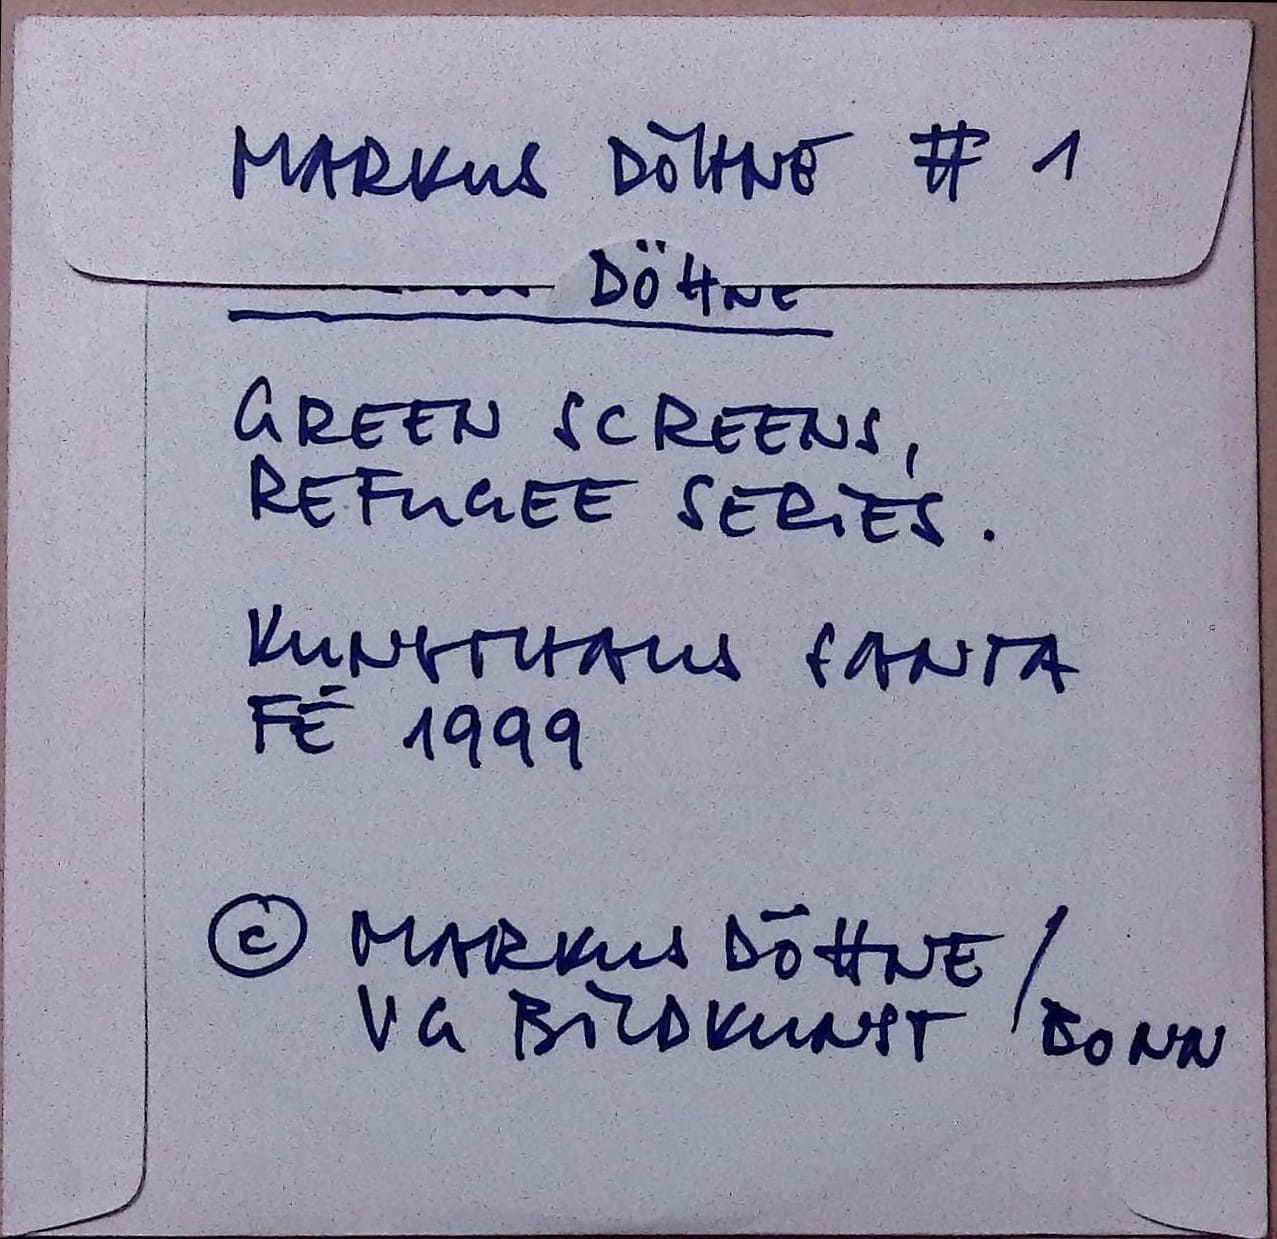 MARKUS DÖHNE # 1
DÖHNE
GREEN SCREENS,
REFUGEE SERIES.
KUNSTHAUS SANTA
FÉ 1999
© MARKUS DÖHNE /
VG BILDKUNST BONN